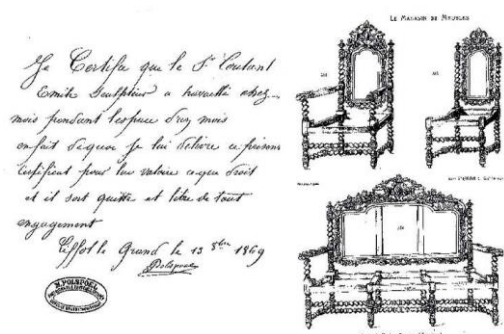 Je Certifie que le Sr Coutant
Emile Sculpteur a travaillé chez
mois pendant l'espace d'un mois
en fait de quoi je lui délivre ce présent
certificat pour lui valoir ce que droit
et il sort quitte et libre de tout
engagement
Liffol le Grand le 13 8bre 1869
Polspoel
M. POLSPOEL
LE MAGASIN DE MEUBLES